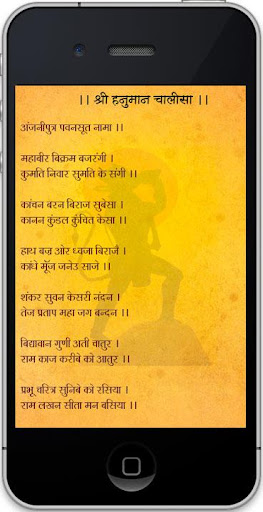 ।। श्री हनुमान चालीसा ।।
अंजनीपुत्र पवनसूत नामा ।।
महाबीर बिक्रम बजरंगी ।
कुमति निवार सुमति के संगी ।।
कांचन बरन बिराज सुबेसा ।
कानन कुंडल कुंचित केसा ।।
हाथ बज्र ओर ध्वजा बिराजै ।
कांधे मूँज जनेउ साजे ।।
शंकर सुवन केसरी नंदन ।
तेज प्रताप महा जग बन्दन ।।
बिद्यावान गुणी अती चातुर ।
राम काज करीबे को आतुर ।।
प्रभू चरित्र सुनिबे को रसिया ।
राम लखन सीता मन बसिया ।।